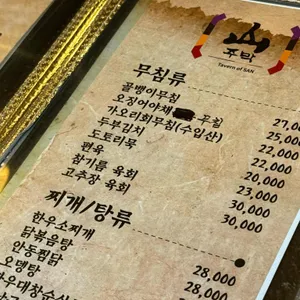 山
주막
Tavern of SAN
무침류
골뱅이무침 27,0
오징어야채 무침 25,00
가오리회무침(수입산) 22,000
두부김치 22,000
도토리묵 20,000
편육 23,000
참기름 육회 30,000
고추장 육회 30,000
찌개/탕류
한우소찌개
닭볶음탕 28,000
안동찜닭 28,000
오뎅탕